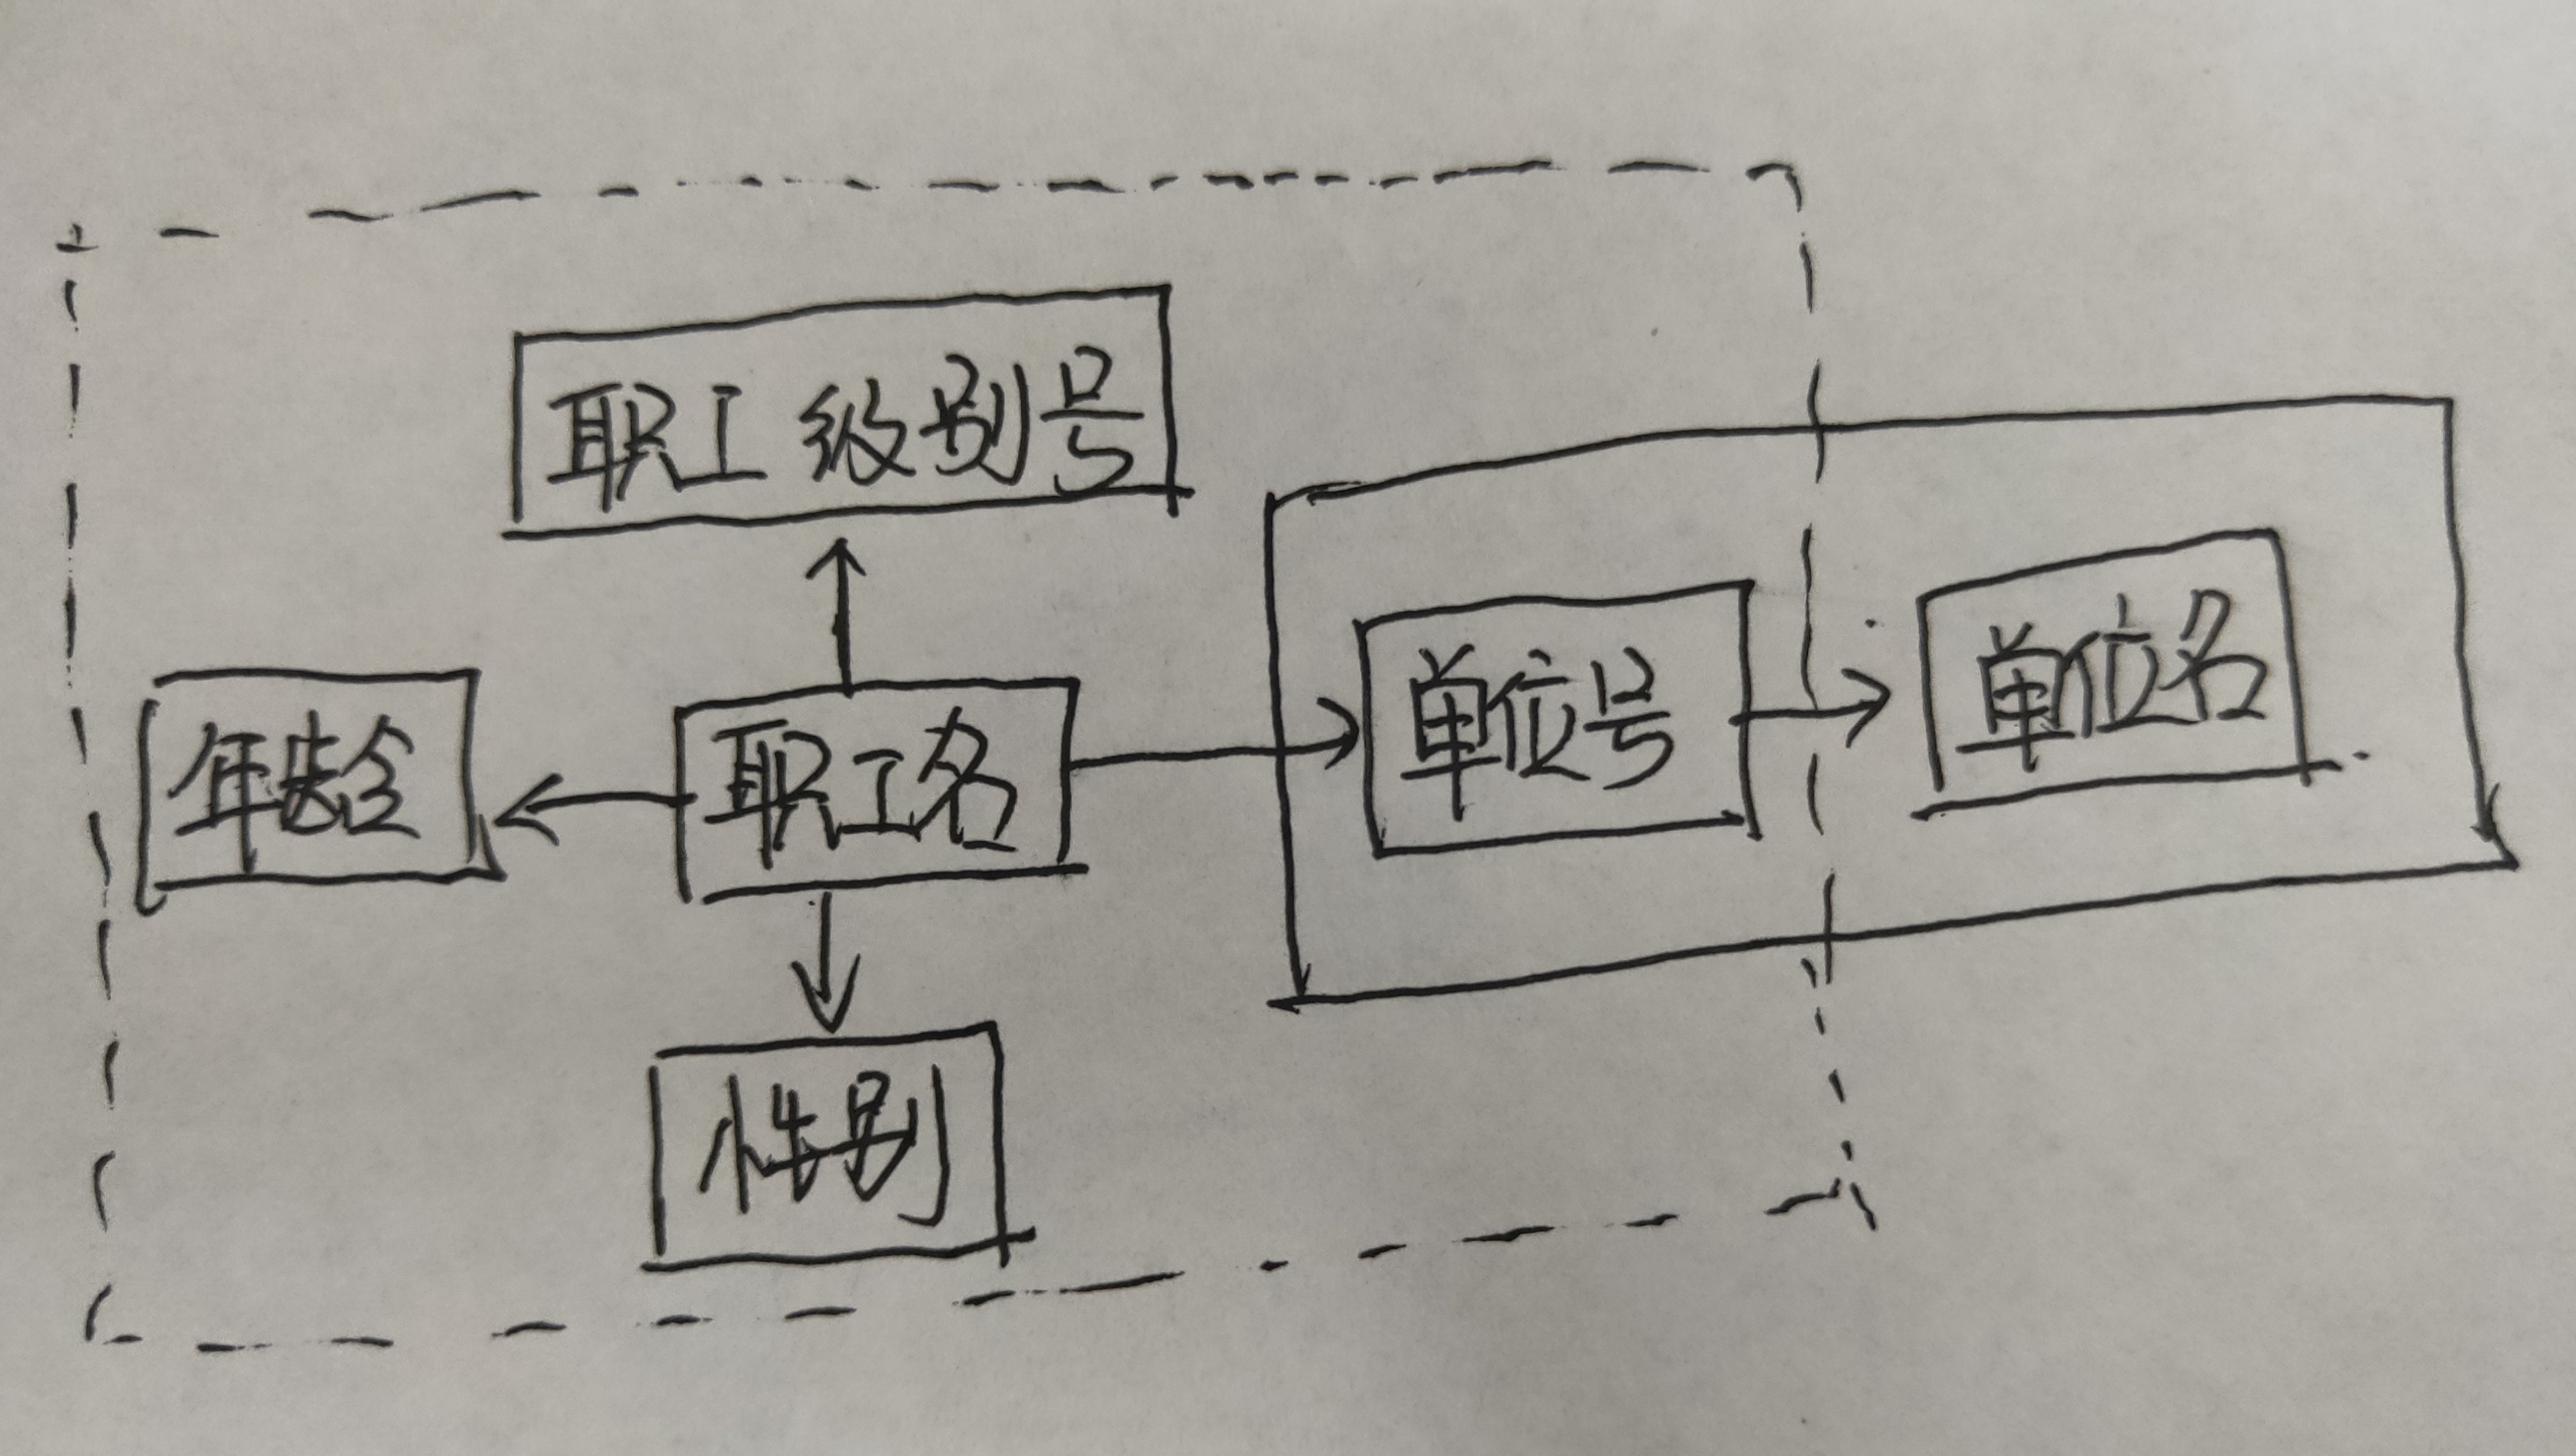 职工级别号
年龄
职工名
单位号
单位名
性别